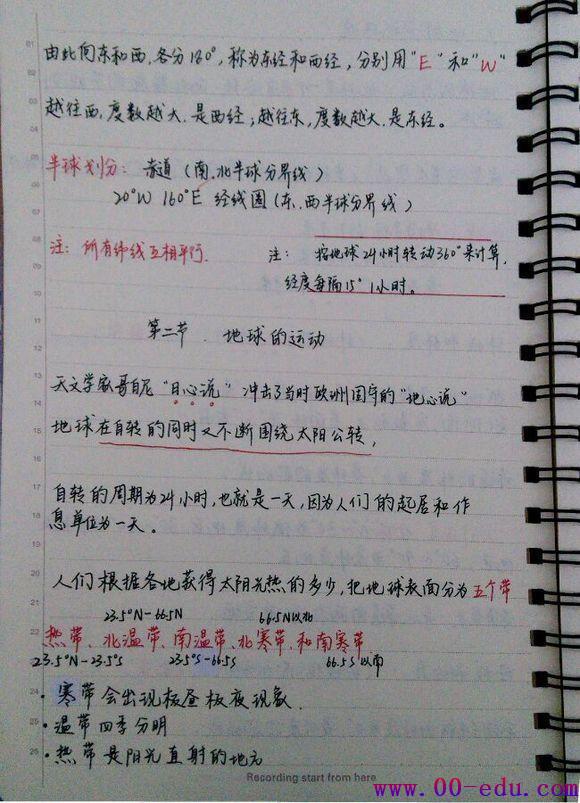 由此向东和西,各分180°,称为东经和西经,分别用"E"和"W"
越往西,度数越大.是西经;越往东,度数越大.是东经。
半球划分: 赤道(南.北半球分界线)
20°W 160°E 经线圈(东.西半球分界线)
注: 所有纬线互相平行.
注: 按地球24小时转动360°来计算,
经度每隔15°1小时。
第二节. 地球的运动
天文学家哥白尼"日心说"冲击了当时欧洲固守的"地心说"
地球在自转的同时又不断围绕太阳公转,
自转的周期为24小时,也就是一天,因为人们的起居和作
息单位为一天。
人们根据各地获得太阳光热的多少,把地球表面分为五个带
23.5°N-66.5N 66.5N以北
热带、北温带、南温带、北寒带、和南寒带
23.5°N-23.5°S 23.5°S-66.5S 66.5S以南
·寒带会出现极昼极夜现象.
·温带四季分明
·热带是阳光直射的地方
Recording start from here
www.00-edu.com